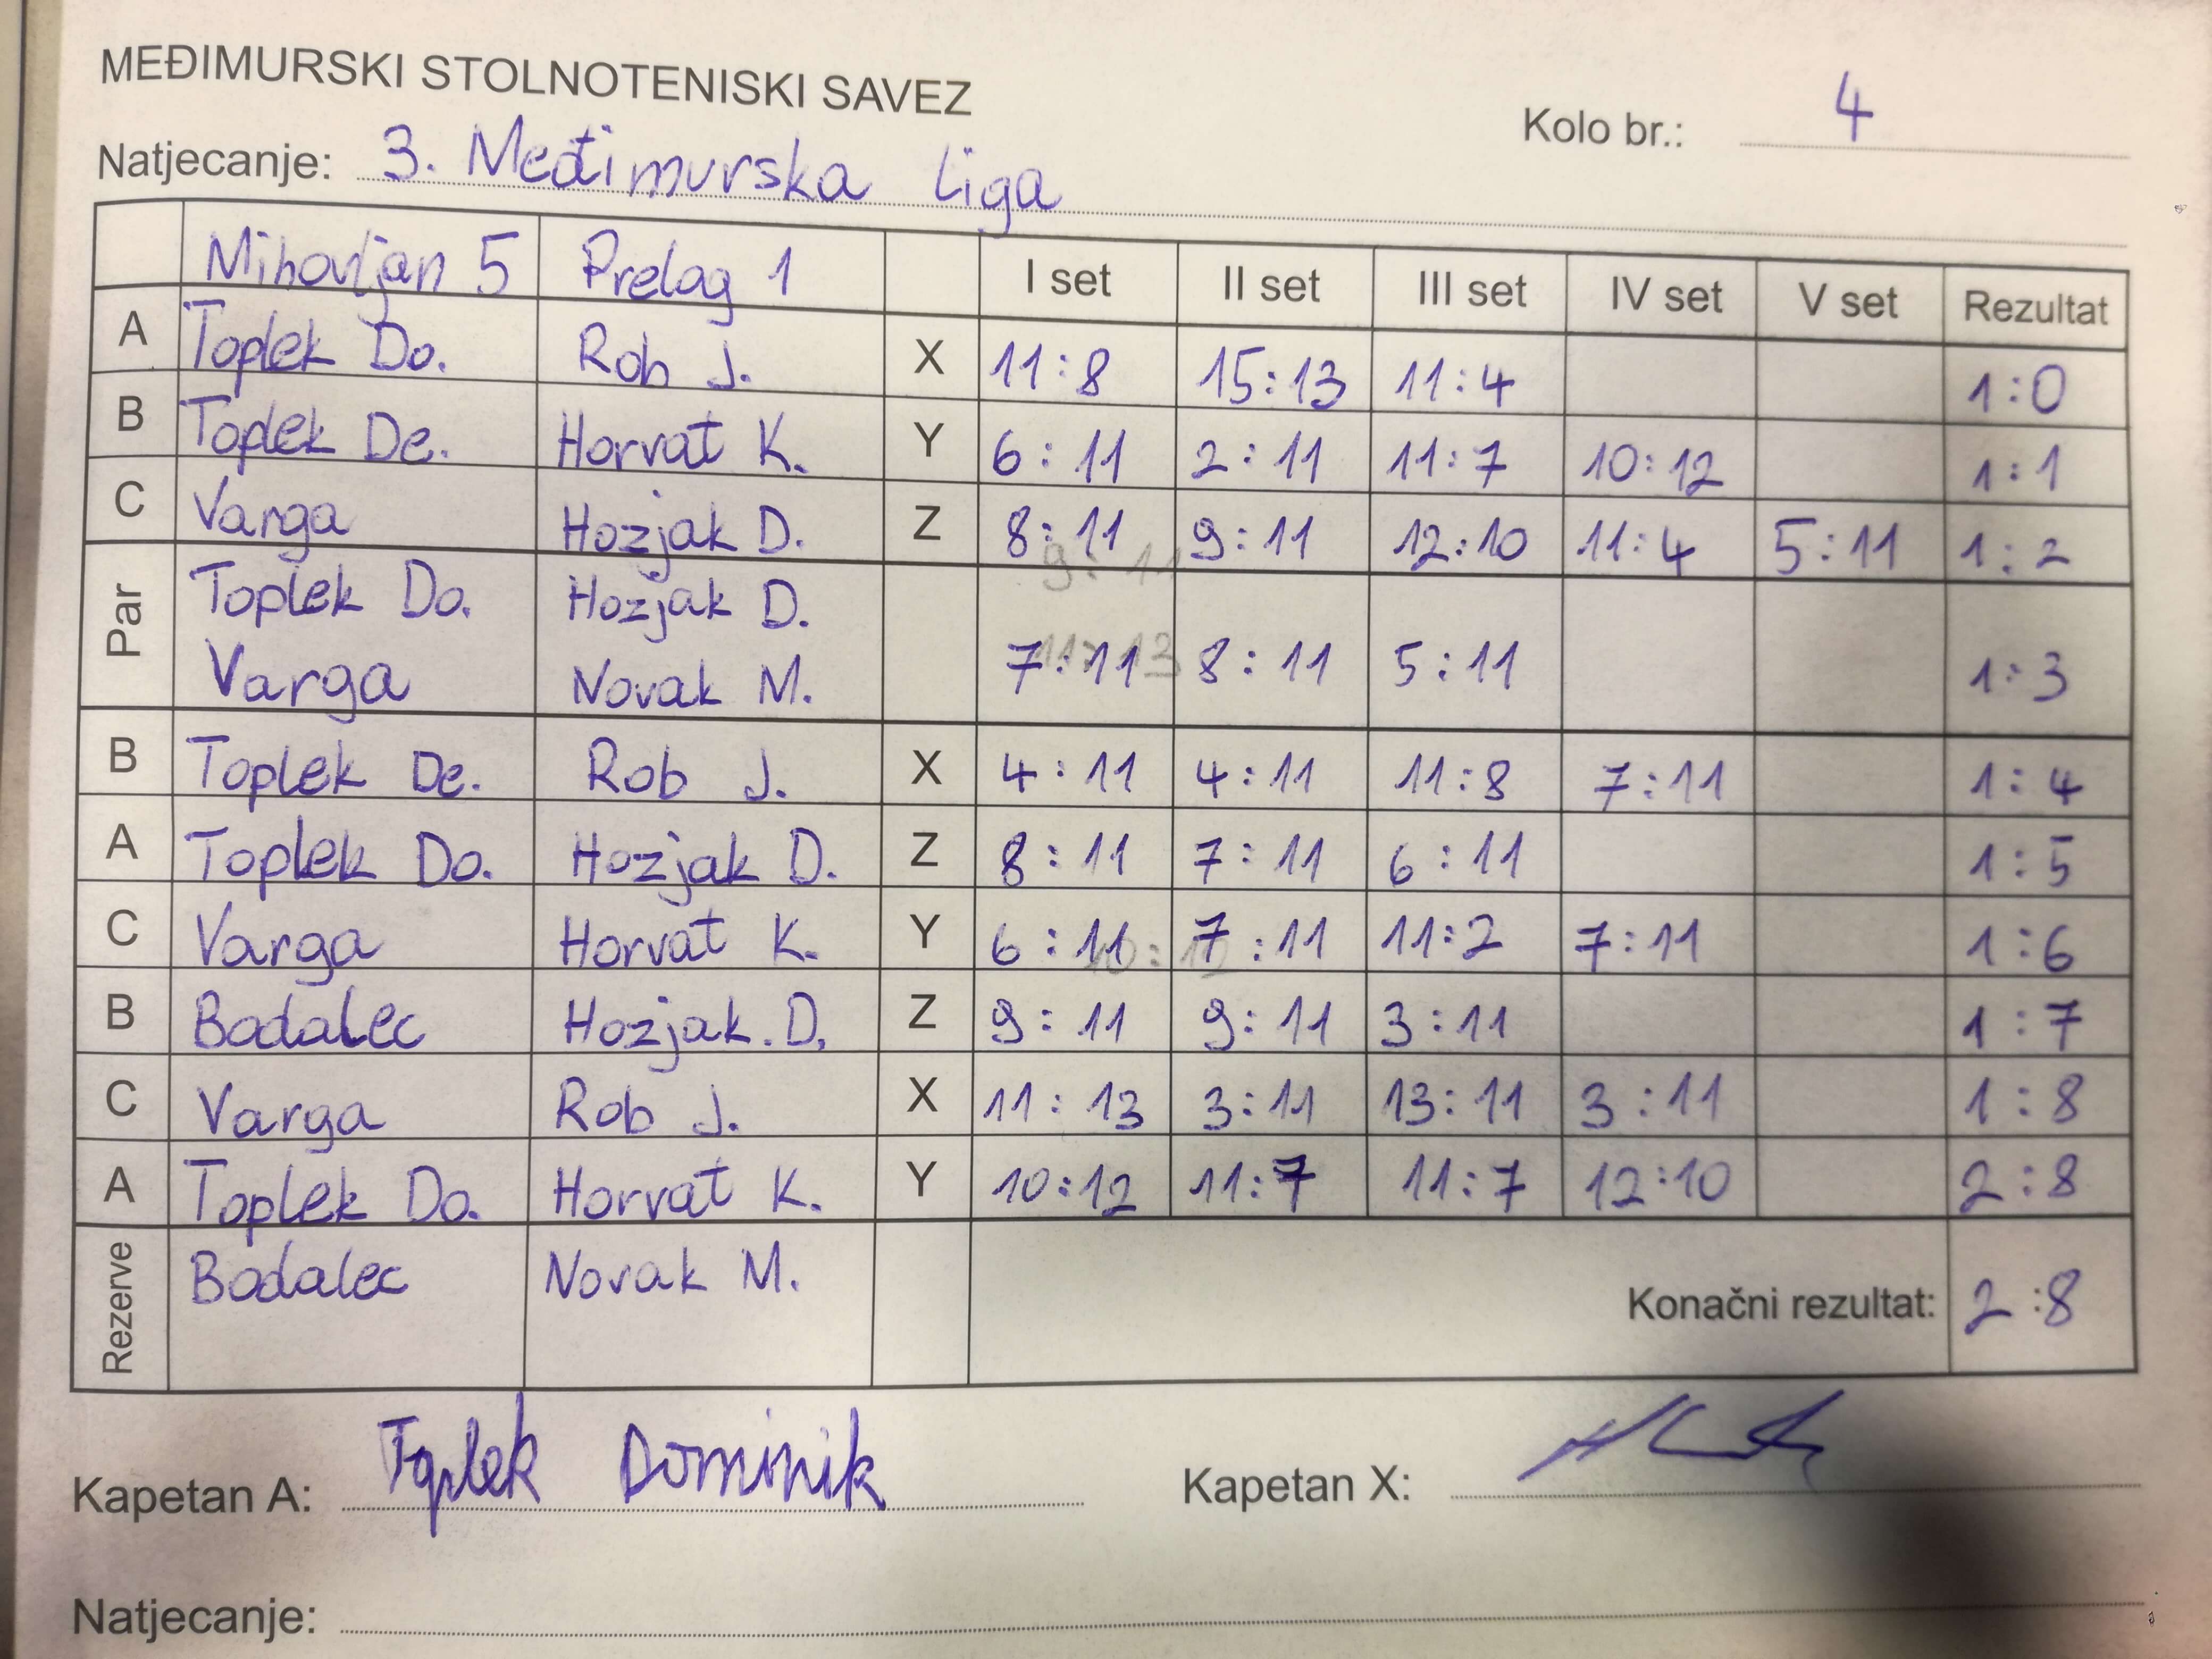 MEĐIMURSKI STOLNOTENISKI SAVEZ
Kolo br.: 4
Natjecanje: 3. Međimurska liga
Mihovljan 5 Prelog 1 I set II set III set IV set V set Rezultat
A Toplek Do. Rob J. X 11:8 15:13 11:4 1:0
B Toplek De. Horvat K. Y 6:11 2:11 11:7 10:12 1:1
C Varga Hozjak D. Z 8:11 9:11 12:10 11:4 5:11 1:2
Par Toplek Do. Hozjak D.
Varga Novak M. 7:11 8:11 5:11 1:3
B Toplek De. Rob J. X 4:11 4:11 11:8 7:11 1:4
A Toplek Do. Hozjak D. Z 8:11 7:11 6:11 1:5
C Varga Horvat K. Y 6:11 7:11 11:2 7:11 1:6
B Badalec Hozjak.D. Z 9:11 9:11 3:11 1:7
C Varga Rob J. X 11:13 3:11 13:11 3:11 1:8
A Toplek Do. Horvat K. Y 10:12 11:7 11:7 12:10 2:8
Rezerve Badalec Novak M. Konačni rezultat: 2:8
Kapetan A: Toplek Dominik Kapetan X:
Natjecanje: